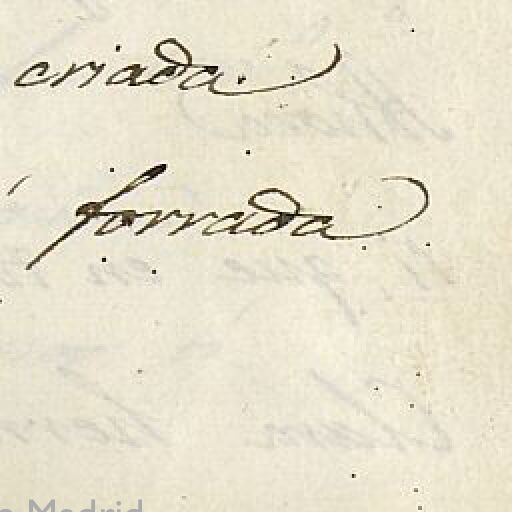 criada.
forrada
Madrid